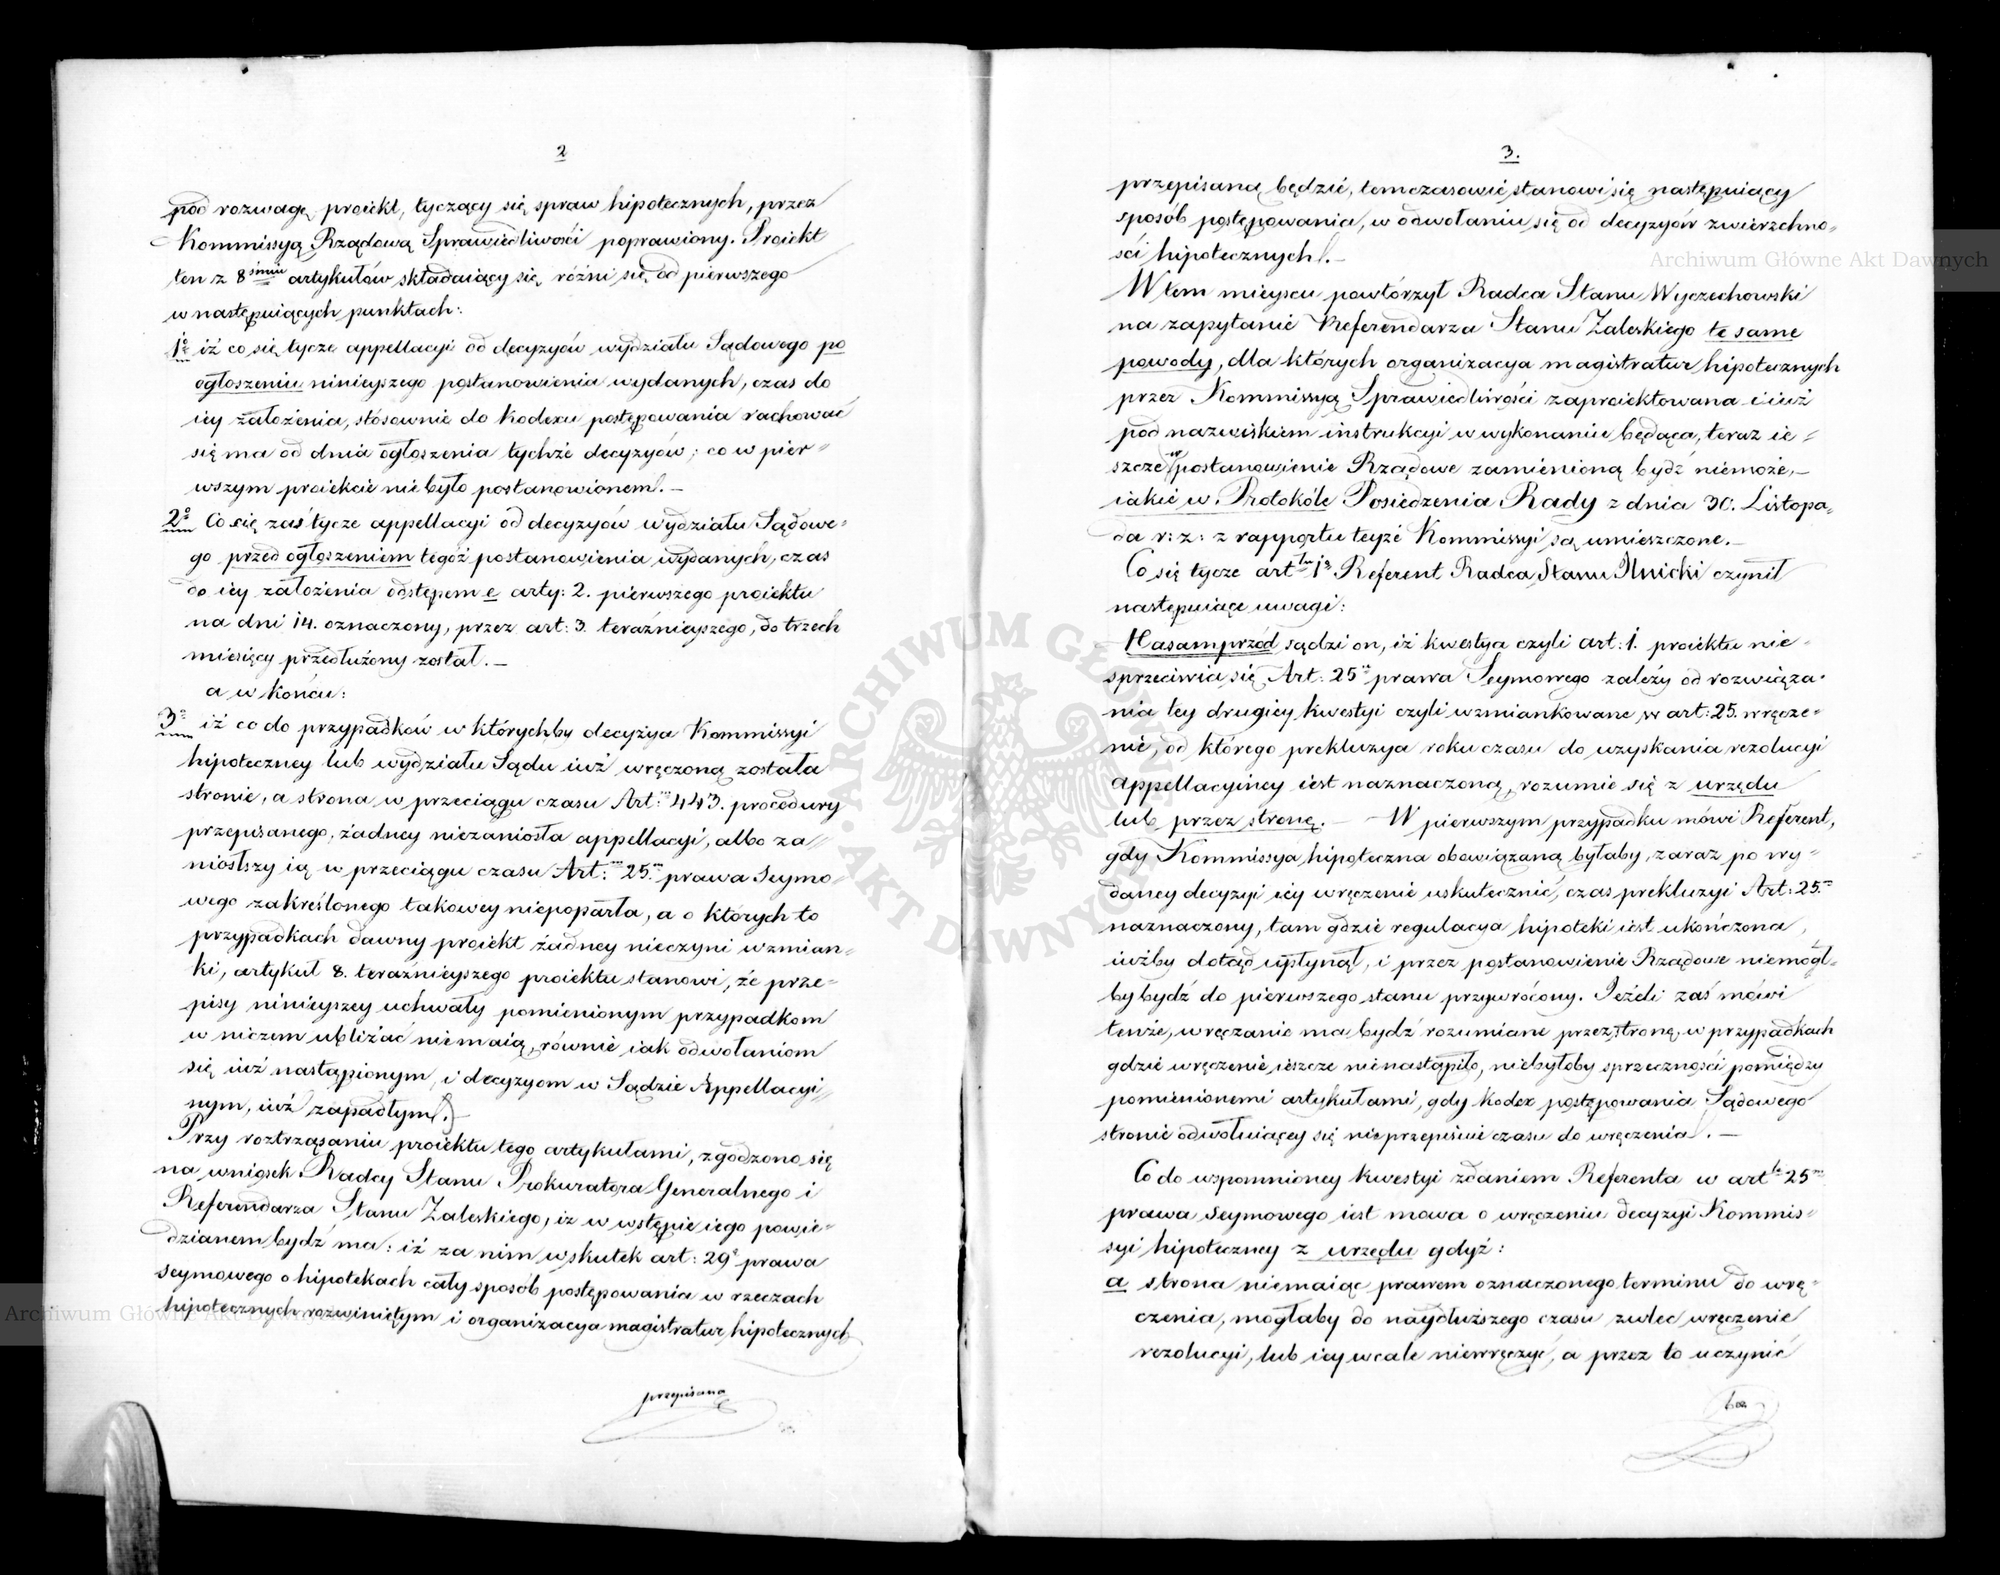 2
pod rozwagę proiekt, tyczący się spraw hipotecznych, przez
Kommissyą Rządową Sprawiedliwości poprawiony. Proiekt
ten z 8śmiu artykułów składaiący się, różni się od pierwszego
w następuiących punktach:
1º iż co się tycze appellacyi od decyzyów wydziału Sądowego po
ogłoszeniu ninieyszego postanowienia wydanych, czas do
iey założenia, stósownie do kodexu postępowania rachować
się ma od dnia ogłoszenia tychże decyzyów; co w pier=
wszym proiekcie nie było postanowionem.—
2º Co się zaś tycze appellacyi od decyzyów wydziału Sądowe=
go przed ogłoszeniem tegóż postanowienia wydanych, czas
do iey założenia odstępem e arty: 2. pierwszego proiektu
na dni 14. oznaczony, przez art: 3. teraźnieyszego, do trzech
miesięcy przedłużony został.—
a w końcu:
3º iż co do przypadków w którychby decyzya Kommissyi
hipoteczney lub wydziału Sądu iuż wręczoną została
stronie, a strona w przeciągu czasu Art:m 443. procedury
przepisanego, żadney niezaniosła appellacyi, albo za=
niosłszy ią w przeciągu czasu Art:m 25.m prawa Seymo=
wego zakreślonego takowey niepoparła, a o których to
przypadkach dawny proiekt żadney nieczyni wzmian=
ki, artykuł 8. teraźnieyszego proiektu stanowi, że prze=
pisy ninieyszey uchwały pomienionym przypadkom
w niczem ubliżać niemaią, równie iak odwołaniom
się iuż nastąpionym, i decyzyom w Sądzie Appellacyi=
nym, iuż zapadłym.)—
Przy roztrząsaniu proiektu tego artykułami, zgodzono się
na wniosek Radcy Stanu Prokuratora Generalnego i
Referendarza Stanu Zaleskiego, iż w wstępie iego powie=
dzianem bydź ma: iż za nim wskutek art: 29º prawa
seymowego o hipotekach cały sposób postępowania w rzeczach
hipotecznych rozwiniętym i organizacya magistratur hipotecznych
przepisana
3.
przepisaną będzie, tomczasowie stanowi się następuiący
sposób postępowania, w odwołaniu się od decyzyów zwierzchno=
ści hipotecznych.—
W tem mieyscu powtórzył Radca Stanu Wyczechowski
na zapytanie Referendarza Stanu Zaleskiego te same
powody, dla których organizacya magistratur hipotecznych
przez Kommissyą Sprawiedliwości zaproiektowana i iuż
pod nazwiskiem instrukcyi w wykonaniu będąca, teraz ie=
szcze w postanowienie Rządowe zamienioną bydź niemoże,—
iakie w Protokóle Posiedzenia Rady z dnia 30. Listopa=
da r: z: z rapportu teyże Kommissyi są umieszczone.—
Co się tycze arttu 1g Referent Radca Stanu Ilnicki czynił
następuiące uwagi:
Nasamprzód sądzi on, iż kwestya czyli art: 1. proiektu nie=
sprzeciwia się Art: 25u prawa Seymowego zależy od rozwiąza=
nia tey drugiey kwestyi czyli wzmiankowane w art: 25. wręcze=
nie, od którego prekluzya roku czasu do uzyskania rezolucyi
appellacyiney iest naznaczoną, rozumie się z urzędu
lub przez stronę.— W pierwszym przypadku mówi Referent,
gdy Kommissya hipoteczna obowiązaną byłaby, zaraz po wy=
daney decyzyi iey wręczenie uskutecznić, czas prekluzyi Art: 25.m
naznaczony, tam gdzie regulacya hipoteki iest ukończona,
iużby dotąd upłynął, i przez postanowienie Rządowe niemógł=
by bydź do pierwszego stanu przywrócony. Jeżeli zaś mówi
tenże, wręczanie ma bydź rozumiane przez stronę, w przypadkach
gdzie wręczenie ieszcze nienastąpiło, niebyłoby sprzeczności pomiędzy
pomienionemi artykułami, gdy kodex postępowania Sądowego
stronie odwołuiącey się nieprzepisuie czasu do wręczenia.—
Co do wspomnioney kwestyi zdaniem Referenta w artle 25m
prawa Seymowego iest mowa o wręczeniu decyzyi Kommis=
syi hipoteczney z urzędu gdyż:
a strona niemaiąc prawem oznaczonego terminu do wrę=
czenia, mogłaby do naydłuższego czasu zwlec wręczenie
rezolucyi, lub iey wcale niewręczyć, a przez to uczynić
bez
Archiwum Główne Akt Dawnych
Archiwum Główne Akt Dawnych
ARCHIWUM GŁÓWNE AKT DAWNYCH